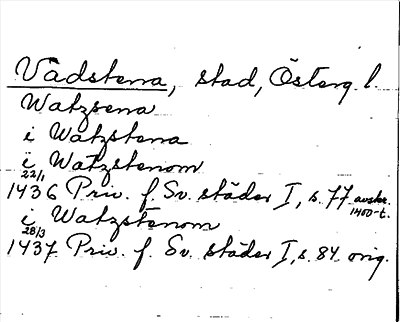 Vadstena, stad, Österg. l.
Watzsena
i Watzstena
i Watzstenom
22/1
1436 Priv. f. Sv. städer I, s. 77 avskr. 1400-t.
i Watzstenom
28/3
1437 Priv. f. Sv. städer I, s. 84 orig.